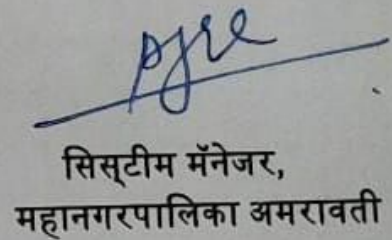 सिस्‌टीम मॅनेजर,
महानगरपालिका अमरावती